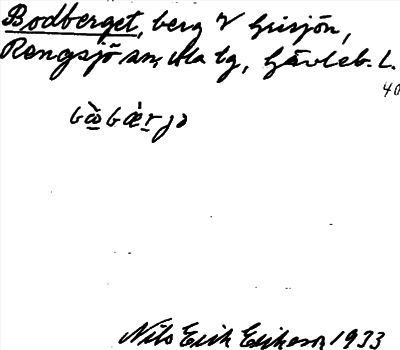 Bodberget, berg V Grisjön,
Rengsjö sn, Ala tg, Gävleb. L.
40
Nils Erik Eriksson 1933